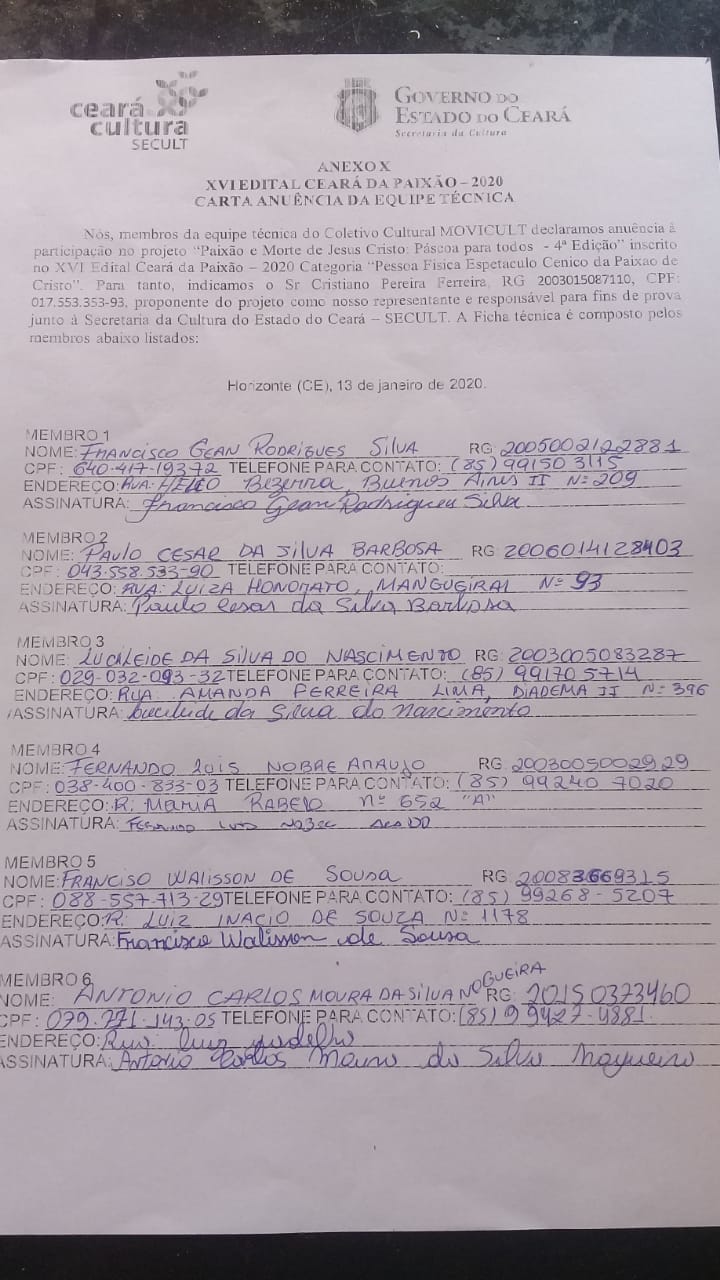 ceará
cultura
SECULT
GOVERNO DO
ESTADO DO CEARÁ
Secretaria da Cultura
ANEXO X
XVI EDITAL CEARÁ DA PAIXÃO – 2020
CARTA ANUÊNCIA DA EQUIPE TÉCNICA
Nós, membros da equipe técnica do Coletivo Cultural MOVICULT declaramos anuência à
participação no projeto “Paixão e Morte de Jesus Cristo: Páscoa para todos - 4ª Edição” inscrito
no XVI Edital Ceará da Paixão – 2020 Categoria “Pessoa Fisica Espetaculo Cenico da Paixao de
Cristo”. Para tanto, indicamos o Sr Cristiano Pereira Ferreira, RG 2003015087110, CPF:
017.553.353-93, proponente do projeto como nosso representante e responsável para fins de prova
junto à Secretaria da Cultura do Estado do Ceará – SECULT. A Ficha técnica é composto pelos
membros abaixo listados:
Horizonte (CE), 13 de janeiro de 2020.
MEMBRO 1
NOME: FRANCISCO GEAN RODRIGUES SILVA RG 2005002122881
CPF: 640-417-193-72 TELEFONE PARA CONTATO: (85) 99150 3115
ENDEREÇO: RUA: HELIO BEZERRA, BUENOS AIRES II Nº 209
ASSINATURA: Francisco Gean Rodrigues Silva
MEMBRO 2
NOME: PAULO CESAR DA SILVA BARBOSA RG 2006014128403
CPF: 043.558.533-90 TELEFONE PARA CONTATO:
ENDEREÇO: RUA: LUIZA HONORATO, MANGUEIRAL Nº 93
ASSINATURA: Paulo Cesar da Silva Barbosa
MEMBRO 3
NOME: LUCILEIDE DA SILVA DO NASCIMENTO RG: 2003005083287
CPF: 029-032-093-32 TELEFONE PARA CONTATO: (85) 99170 5714
ENDEREÇO: RUA AMANDA FERREIRA LIMA, DIADEMA II Nº 396
ASSINATURA: Lucileide da Silva do Nascimento
MEMBRO 4
NOME: FERNANDO LUIS NOBRE ARAUJO RG: 2003005002929
CPF: 038-400-833-03 TELEFONE PARA CONTATO: (85) 99240 7020
ENDEREÇO: R. MARIA RABELO nº 652 "A"
ASSINATURA: FERNANDO LUIS NOBRE
MEMBRO 5
NOME: FRANCISO WALISSON DE SOUSA RG 20083669315
CPF: 088-557-713-29 TELEFONE PARA CONTATO: (85) 99268-5207
ENDEREÇO: R. LUIZ INACIO DE SOUZA Nº 1178
ASSINATURA: Francisco Walisson de Sousa
MEMBRO 6
NOME: ANTONIO CARLOS MOURA DA SILVA NOGUEIRA RG: 20150373460
CPF: 079.771.143-05 TELEFONE PARA CONTATO: (85) 9 9427-4881
ENDEREÇO: Rua luiz
ASSINATURA: Antonio Carlos Moura da Silva Nogueira